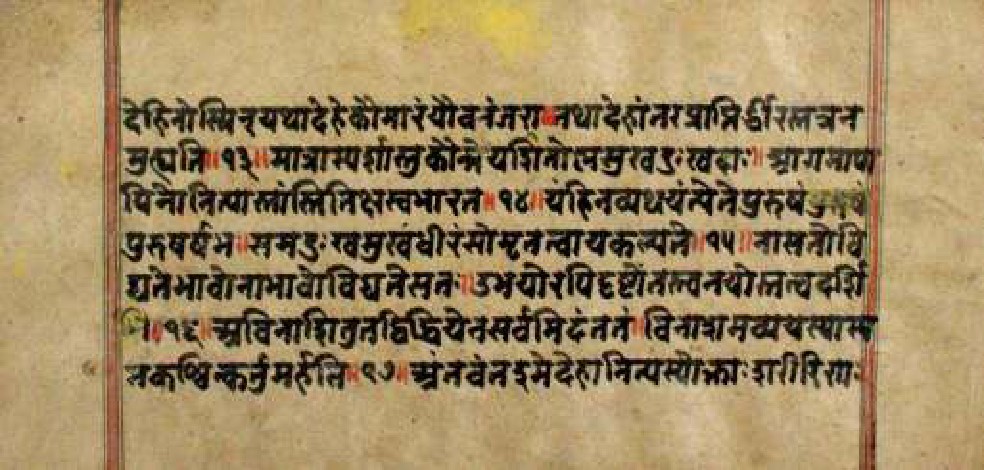 देहिनोस्मिन्यथादेहेकौमारंयौवनंजरा॥तथादेहांतरप्राप्तिर्द्धीरस्तत्रन
मुह्यति॥१३॥मात्रास्पर्शास्तुकौन्तेयशीतोष्णसुखदुःखदाः॥आगमापा
यिनोनित्यास्तांस्तितिक्षस्वभारत॥१४॥यंहिनव्यथयंत्येतेपुरुषं
पुरुषर्षभ॥समदुःखसुखंधीरंसोमृतत्वायकल्पते॥१५॥नासतोवि
द्यतेभावोनाभावोविद्यतेसतः॥उभयोरपिदृष्टोंतस्त्वनयोस्तत्वदर्शि
भिः॥१६॥अविनाशितुतद्विद्धियेनसर्वमिदंततं॥विनाशमव्ययस्यास्य
नकश्चित्कर्तुमर्हति॥१७॥अंतवंतइमेदेहानित्यस्योक्ताःशरीरिणः